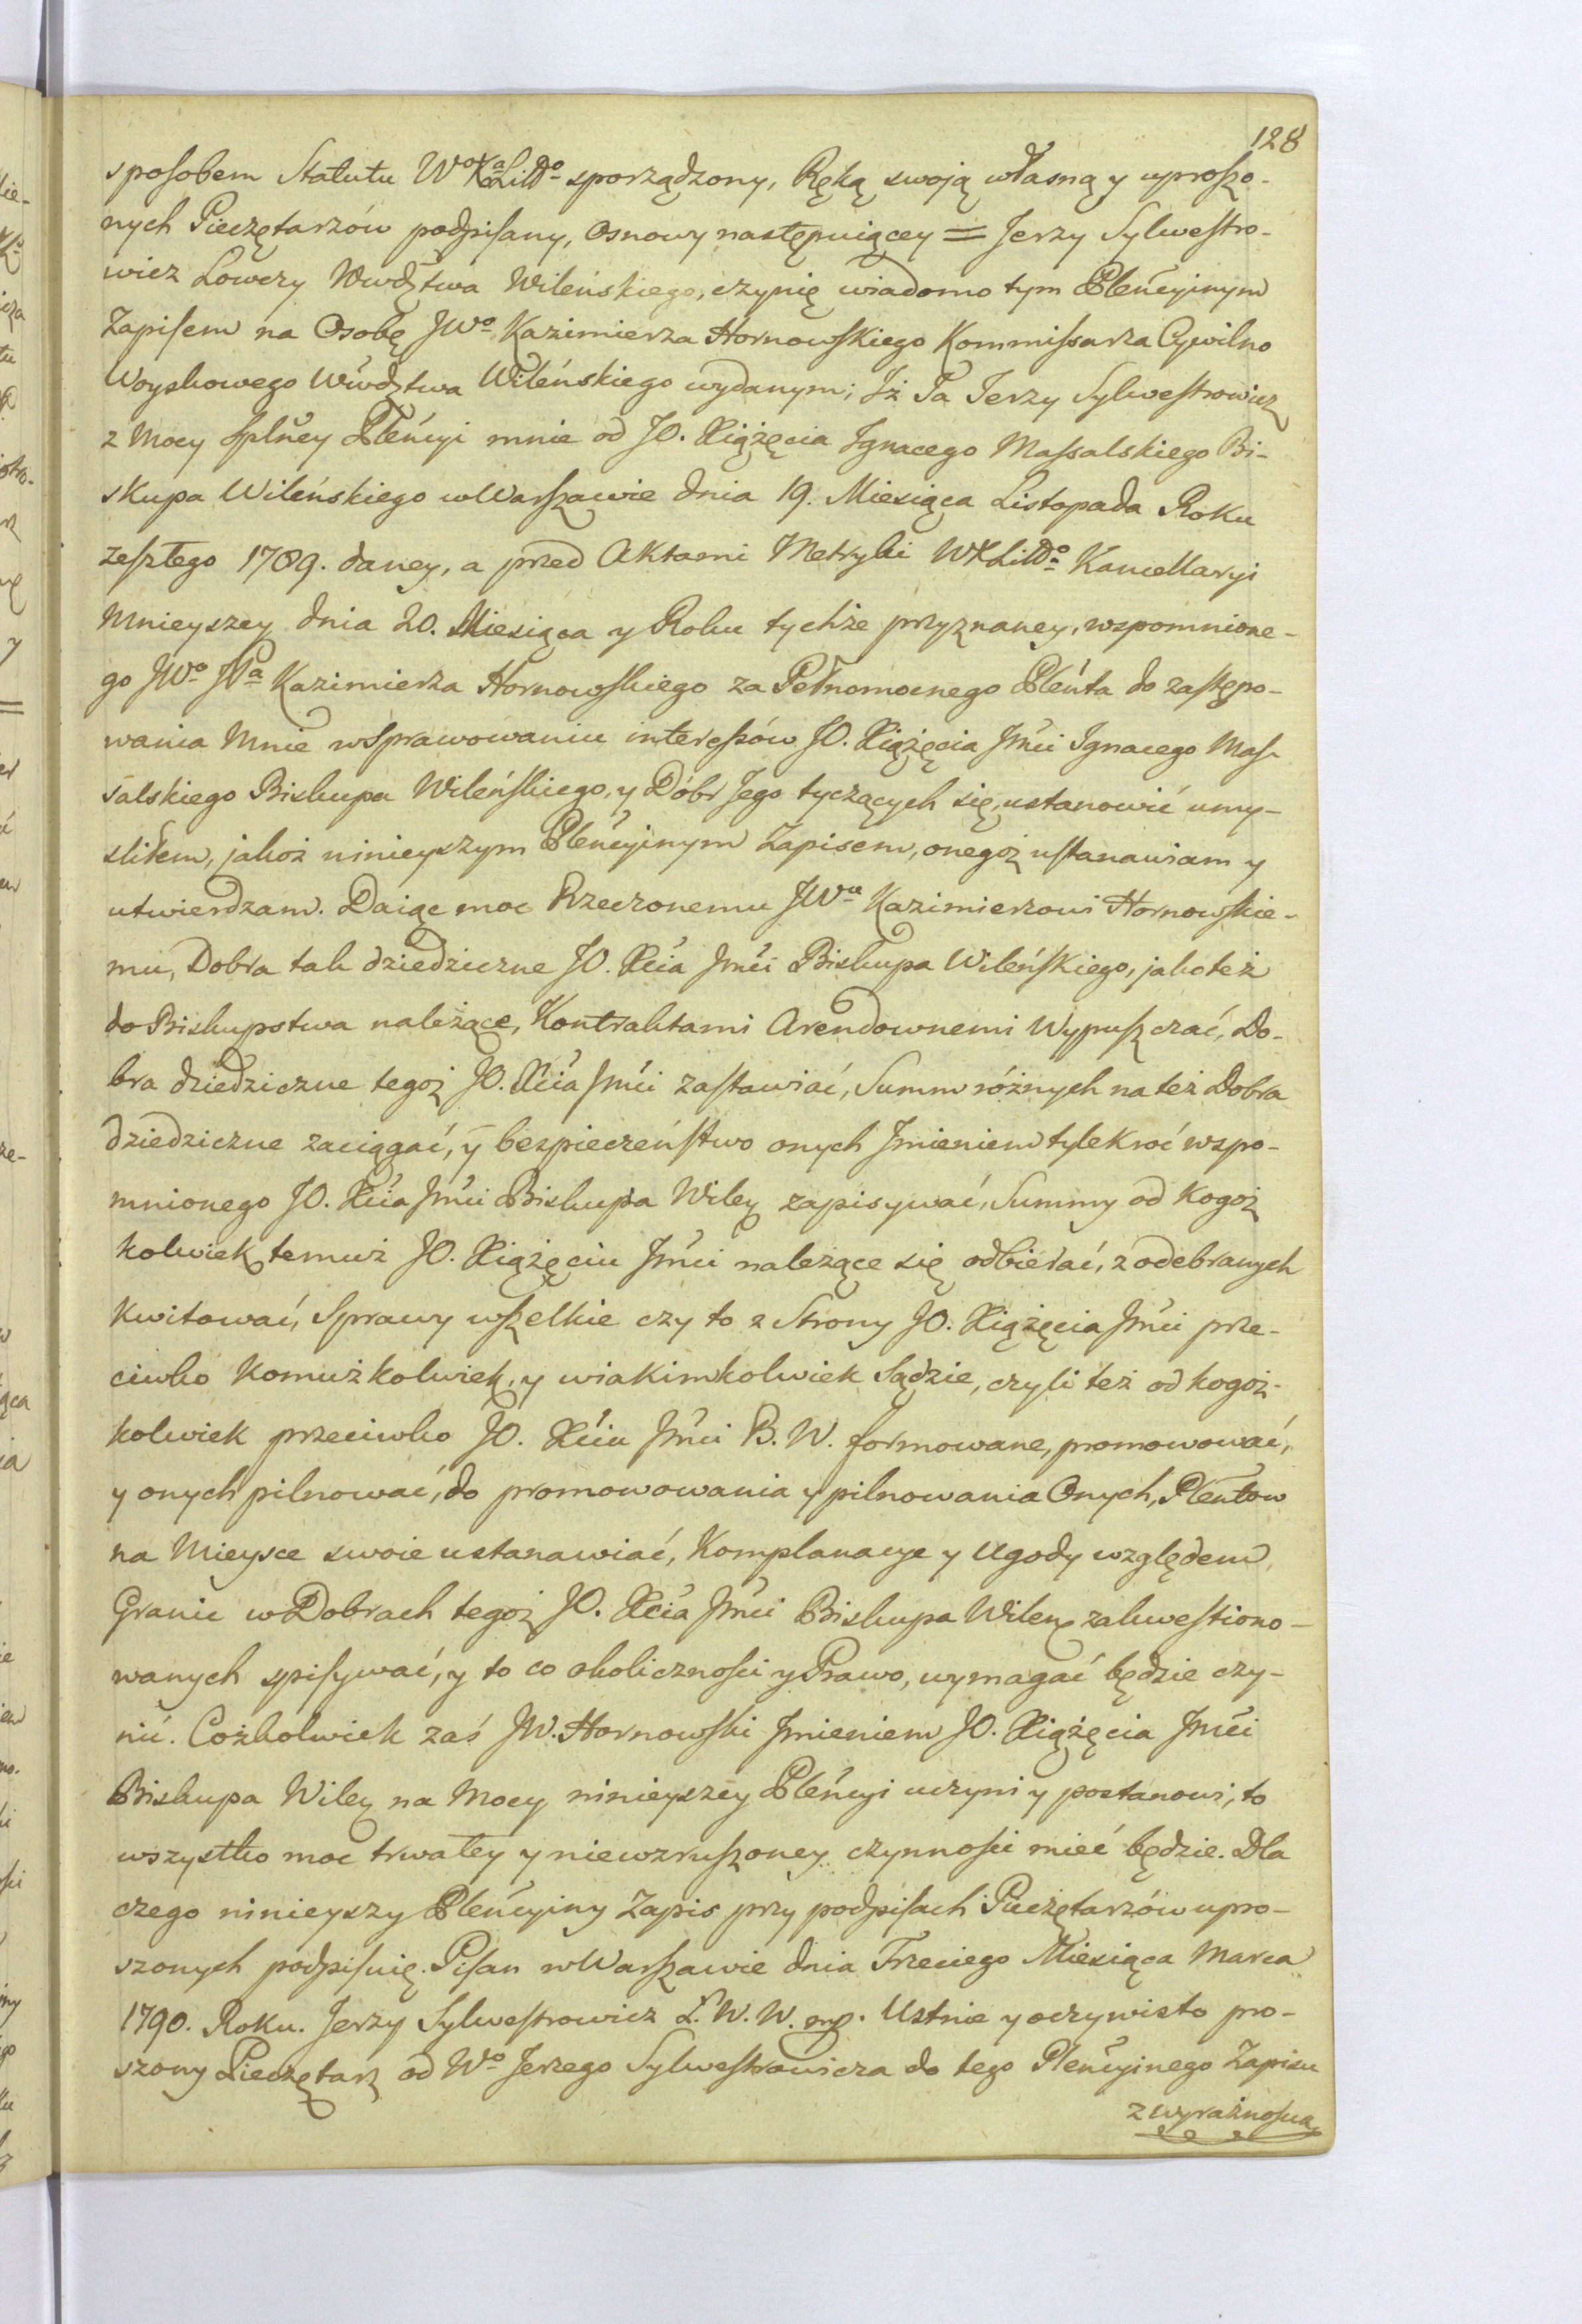 128
sposobem Statutu Wo Xa Litto sporządzony, Ręką swoją własną y uproszo-
nych Pieczętarzów podpisany, Osnowy następuiącey = Jerzy Sylwestro-
wicz Łowczy Wwdztwa Wileńskiego, czynię wiadomo tym Pleńcyinym
Zapisem na Osobę JWo Kazimierza Hornowskiego Kommissarza Cywilno
Woyskowego Wwdztwa Wileńskiego wydanym; Iż Ja Jerzy Sylwestrowicz
z Mocy Splney Pleńcyi mnie od JO. Xiążęcia Ignacego Massalskiego Bi-
skupa Wileńskiego w Warszawie dnia 19. Miesiąca Listopada Roku
zeszłego 1789. daney, a przed Aktami Metryki WXLitto Kancellaryi
Mnieyszey dnia 20. Miesiąca y Roku tychże przyznaney, wspomnione-
go JWo JPa Kazimierza Hornowskiego za Pełnomocnego Pleńta do zastępo-
wania Mnie w Sprawowaniu interessów JO. Xiążęcia Jmci Ignacego Mas-
salskiego Biskupa Wileńskiego, y Dóbr Jego tyczących się, ustanowić umy-
sliłem, jakoż ninieyszym Pleńcyinym Zapisem, onegoż ustanawiam y
utwierdzam. Daiąc moc Rzeczonemu JWu Kazimierzowi Hornowskie-
mu, Dobra tak dziedziczne JO. Xcia Jmci Biskupa Wileńskiego, jako też
do Biskupstwa należące, Kontraktami Arendownemi Wypuszczać, Do-
bra dziedziczne tegoż JO. Xcia Jmci zastawiać, Summ różnych na też Dobra
dziedziczne zaciągać, y bezpieczeństwo onych Jmieniem tylekroć wspo-
mnionego JO. Xcia Jmci Biskupa Wileg zapisywać, Summy od kogoż
kolwiek temuż JO. Xiążęciu Jmci należące się odbierać, z odebranych
kwitować, Sprawy wszelkie czy to z Strony JO. Xiążęcia Jmci prze-
ciwko komuż kolwiek, y wiakimkolwiek Sądzie, czyli też od kogoż-
kolwiek przeciwko JO. Xciu Jmci B. W. formowane, promowować,
y onych pilnować, do promowowania y pilnowania Onych, Pleńtow
na Mieysce swoie ustanawiać, Komplanacye y Ugody względem
Granic w Dobrach tegoż JO. Xcia Jmci Biskupa Wileng zakwestiono-
wanych spisywać, y to co okoliczności y Prawo, wymagać będzie czy-
nić. Cożkolwiek zaś JW. Hornowski Jmieniem JO. Xiążęcia Jmci
Biskupa Wileg na Mocy ninieyszey Pleńcyi uczyni y postanowi, to
wszystko moc trwałey y niewzruszoney czynności mieć będzie. Dla
czego ninieyszy Pleńcyiny Zapis przy podpisach Pieczętarzów upro-
szonych podpisuię. Pisan w Warszawie dnia Trzeciego Miesiąca Marca
1790. Roku. Jerzy Sylwestrowicz Ł. W. W. mp. Ustnie y oczywisto pro-
szony Pieczętarz od Wo Jerzego Sylwestrowicza do tego Pleńcyinego Zapisu
z wyraźnością